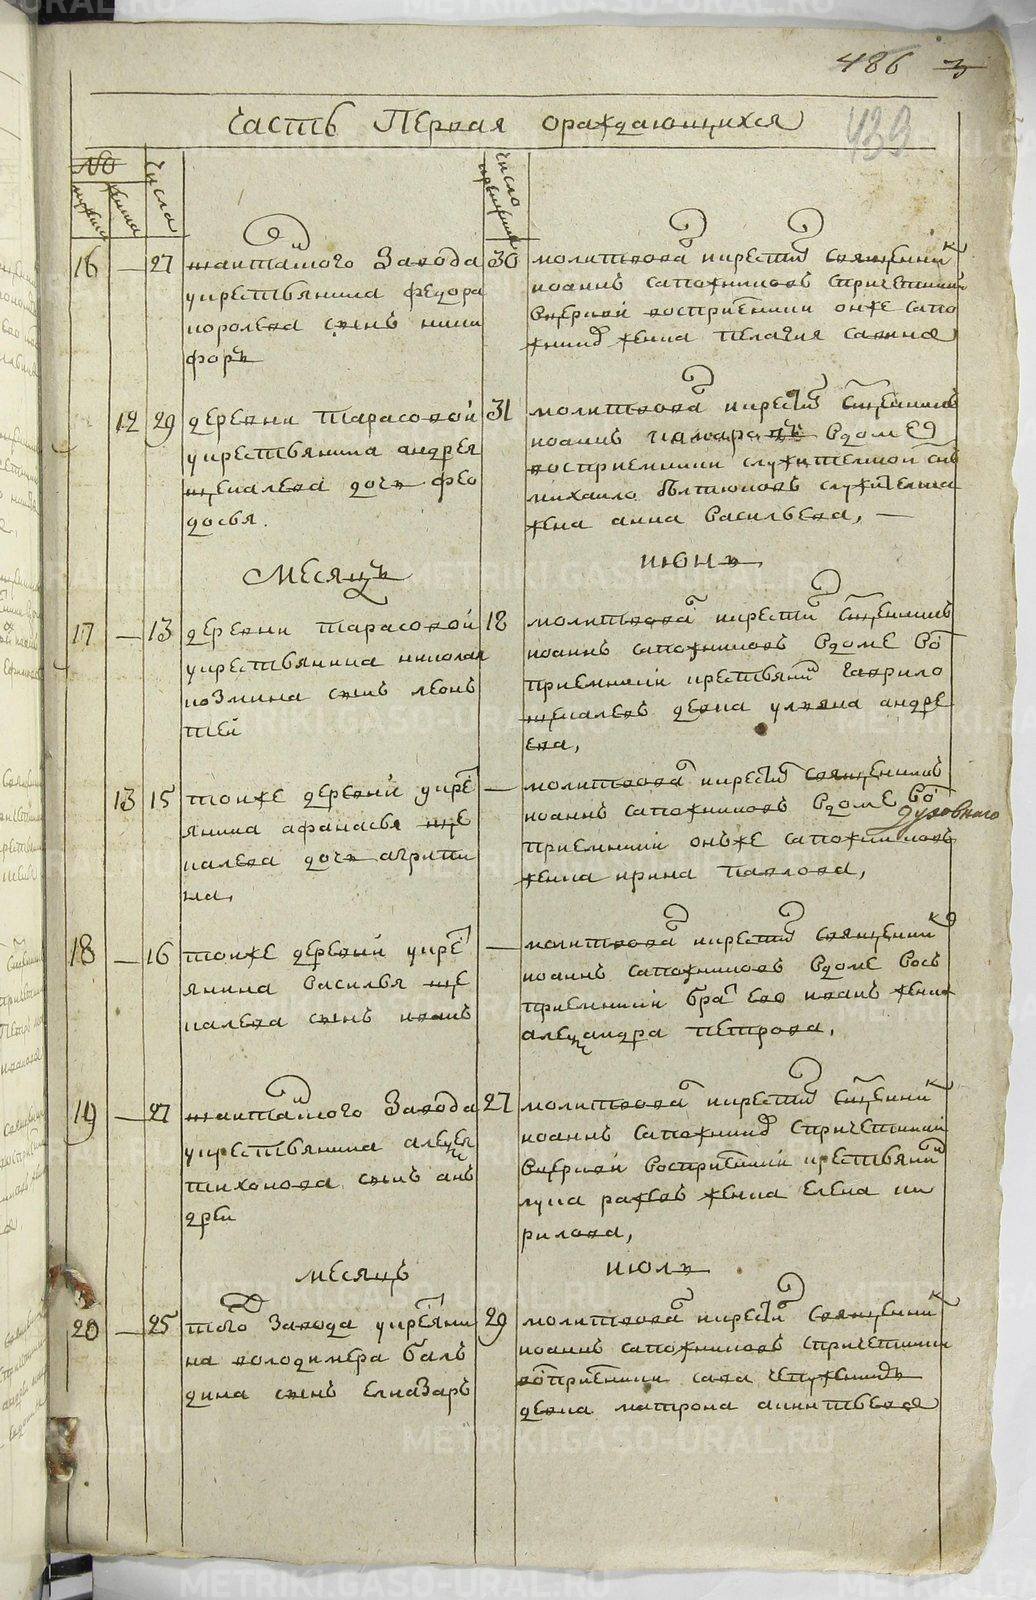 486
Часть Первая ораждающихся
439
№
числа
число крещения
16 — 27 шаитанского завода
у крестьянина федора
королева сынъ ники
форъ
30 молитвовал и крестил священник
иоаннъ сапожниковъ спричетники
вцеркви восприемники онже сапо
жников женка пелагия савина
12 29 деревни тарасовой
у крестьянина андрея
щекалева дочь фео
досья.
31 молитвовал и крестил священникъ
иоаннъ вдоме
восприемники служителской снъ
михаило служителка
жена анна васильева, —
Месяцъ июнь
17 — 13 деревни тарасовой
у крестьянина николая
козмина сынъ леонъ
тей
18 молитвовал и крестил священникъ
иоаннъ сапожниковъ вдоме вос
приемники крестьянин гаврило
щекалевъ девка ульяна андре
ева,
13 15 тоиже деревни у крес
янина афанасья ще
калева дочь агрипи
на,
— молитвовал и крестил священникъ
иоаннъ сапожниковъ вдоме вос
духовного
приемники онъже сапожниковъ
женка ирина павлова,
18 — 16 тоиже деревни у крес
янина василья ще
калева сынъ иванъ
— молитвовал и крестил священник
иоаннъ сапожниковъ вдоме вось
приемники брат ево иванъ женка
александра петрова,
19 — 27 шаитанского завода
у крестьянина алексея
тихонова сынъ анъ
дреи
27 молитвовал и крестил священник
иоаннъ сапожников спричетники
вцеркви восприемники крестьянин
лука ражевъ женка елена ки
рилова,
месяць июль
20 — 25 того завода у крестьяни
на володимера балъ
дина сынъ елиазаръ
29 молитвовал и крестил священник
иоаннъ сапожниковъ спричетники
восприемники сава
девка матрона аникитьева